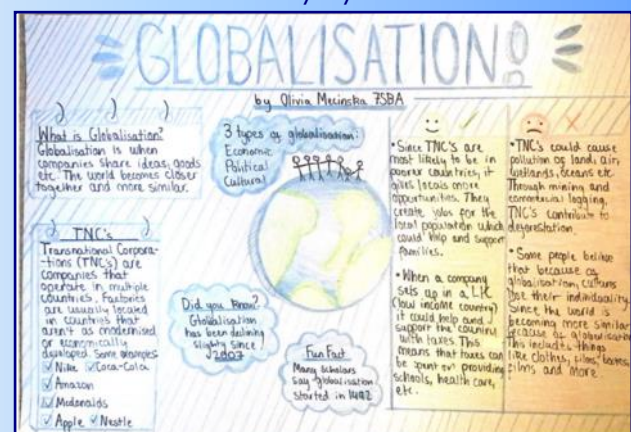 GLOBALISATION
by Olivia Mecinska 7SBA
What is Globalisation?
Globalisation is when
companies share ideas, goods
etc. The world becomes closer
together and more similar.
TNC's
Transnational Corpora-
-tions (TNC's) are
companies that
operate in multiple
countries. Factories
are usually located
in countries that
aren't as modernised
or economically
developed. Some examples
Nike Coca-Cola
Amazon
Mcdonalds
Apple Nestle
3 types of globalisation:
Economic
Political
Cultural
Did you know?
Globalisation
has been declining
slightly since
2007
Fun Fact
Many scholars
say globalisation
started in 1492
• Since TNC's are
most likely to be in
poorer countries, it
gives locals more
opportunities. They
create jobs for the
local population which
could help and support
families.
• When a company
sets up in a LIC
(low income country)
it could help and
support the country
with taxes. This
means that taxes can
be spent on providing
schools, health care,
etc.
• TNC's could cause
pollution of land, air,
wetlands, oceans etc.
Through mining and
commercial logging,
TNC's contribute to
deforestation.
• Some people believe
that because of
globalisation, cultures
lose their individuality.
Since the world is
becoming more similar
because of globalisation
This includes things
like clothes, films,
films and more.